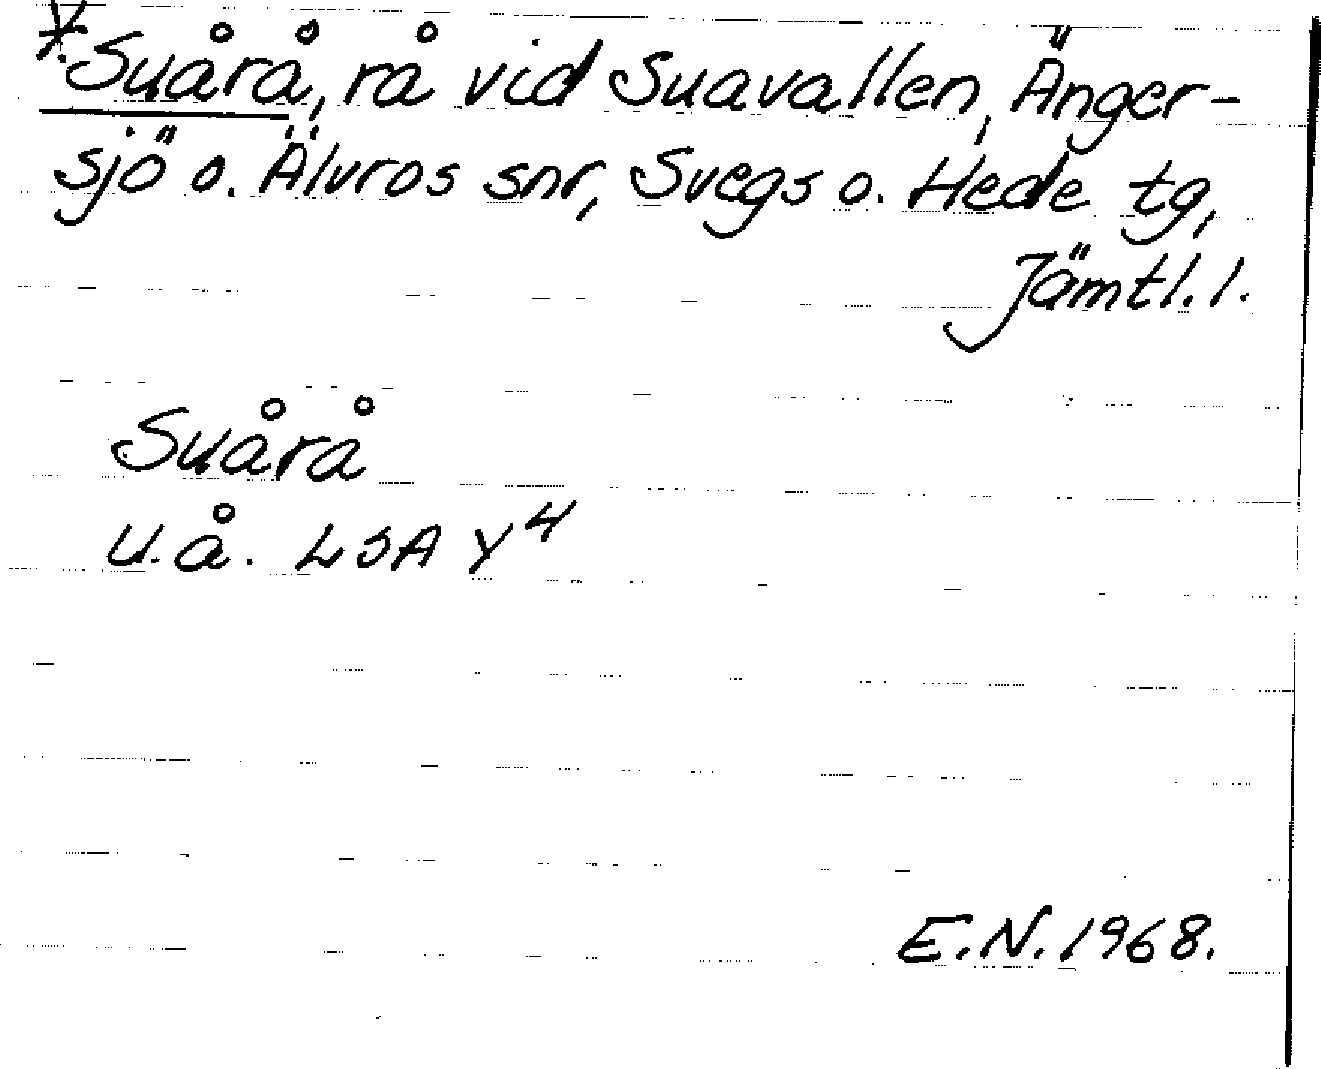 *Suårå, rå vid Suavallen, Änger-
sjö o. Älvros snr, Svegs o. Hede tg,
Jämtl. l.
Suårå
u.å. LSA Y⁴
E.N. 1968.